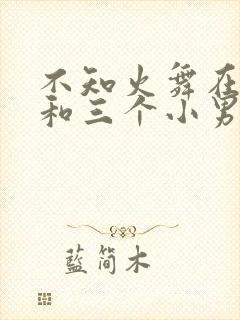 不知火舞在
和三个小男
藍简木